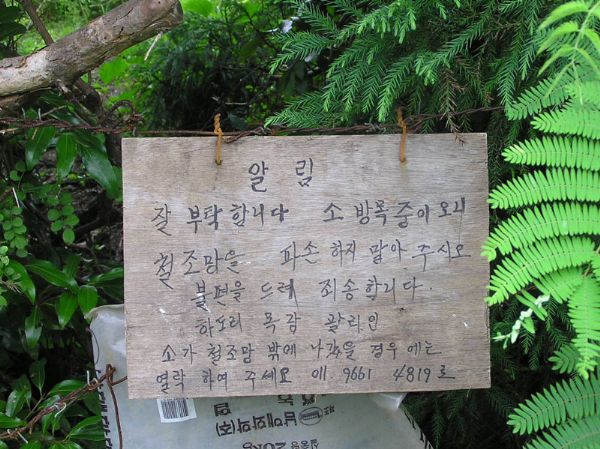 알림
잘 부탁합니다 소 방목 중이오니
철조망을 파손 하지 말아 주시오
불편을 드려 죄송합니다.
하도리 목감 관리인
소가 철조망 밖에 나갔을 경우에는
연락 하여 주세요 에. 9661 4819로
남해화학(주)
20kg